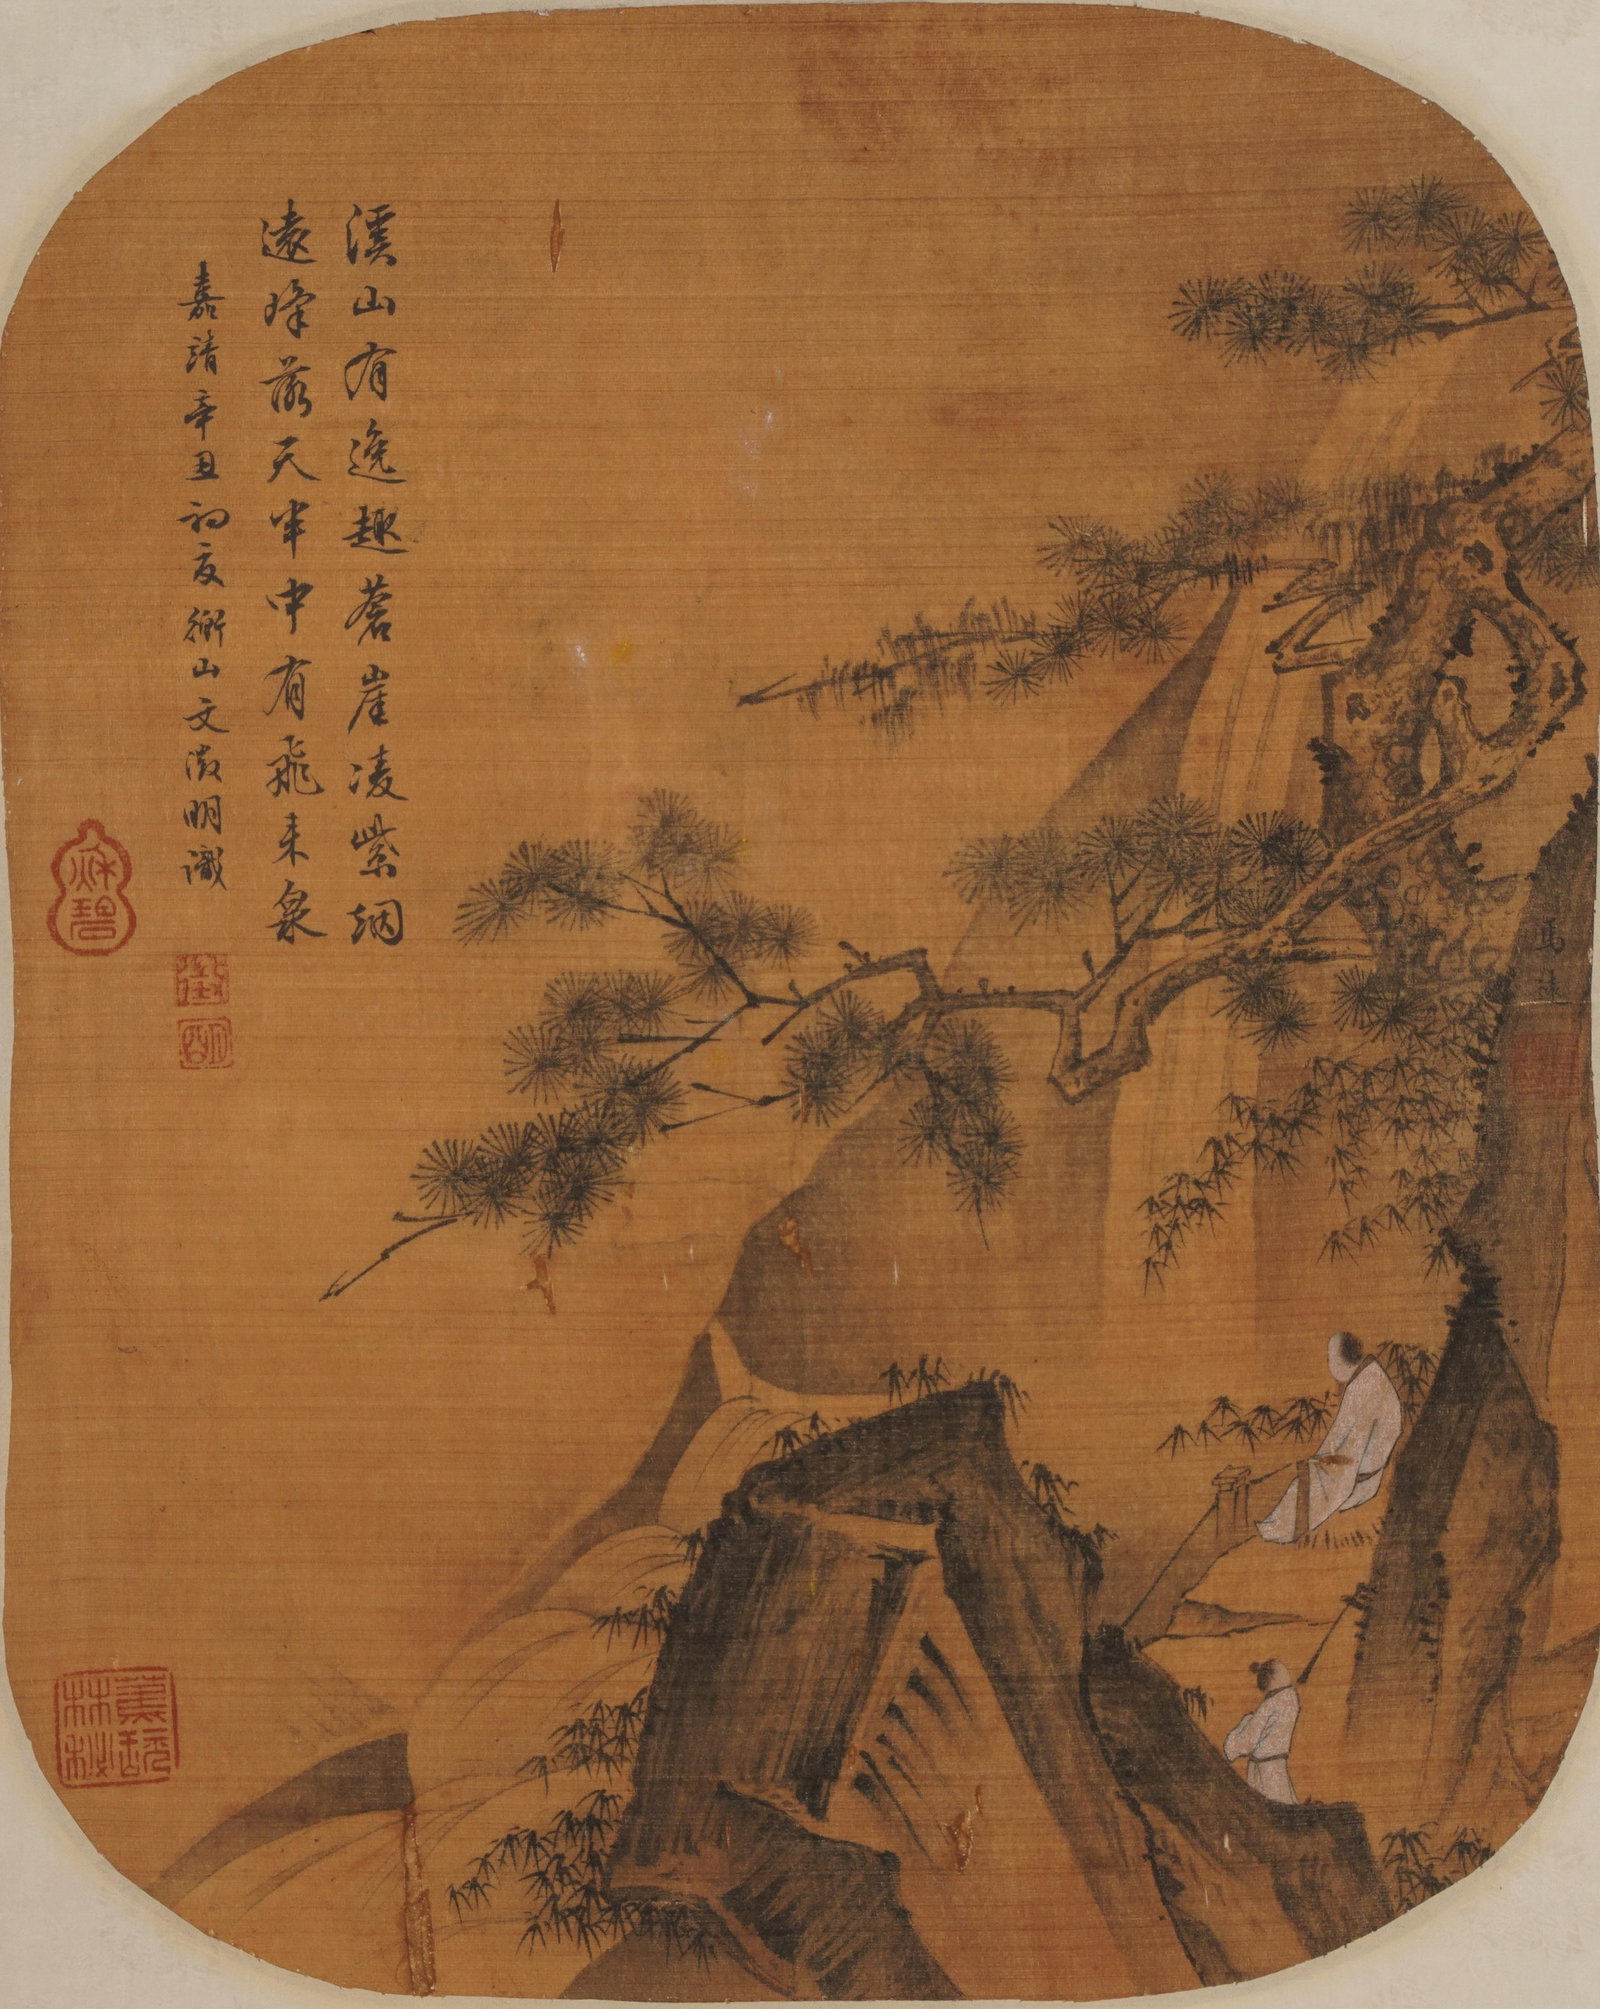 溪山有逸趣蒼崖凌紫烟
遠峰落天半中有飛來泉
嘉靖辛丑初夏衡山文徵明識
馬遠
徵
明